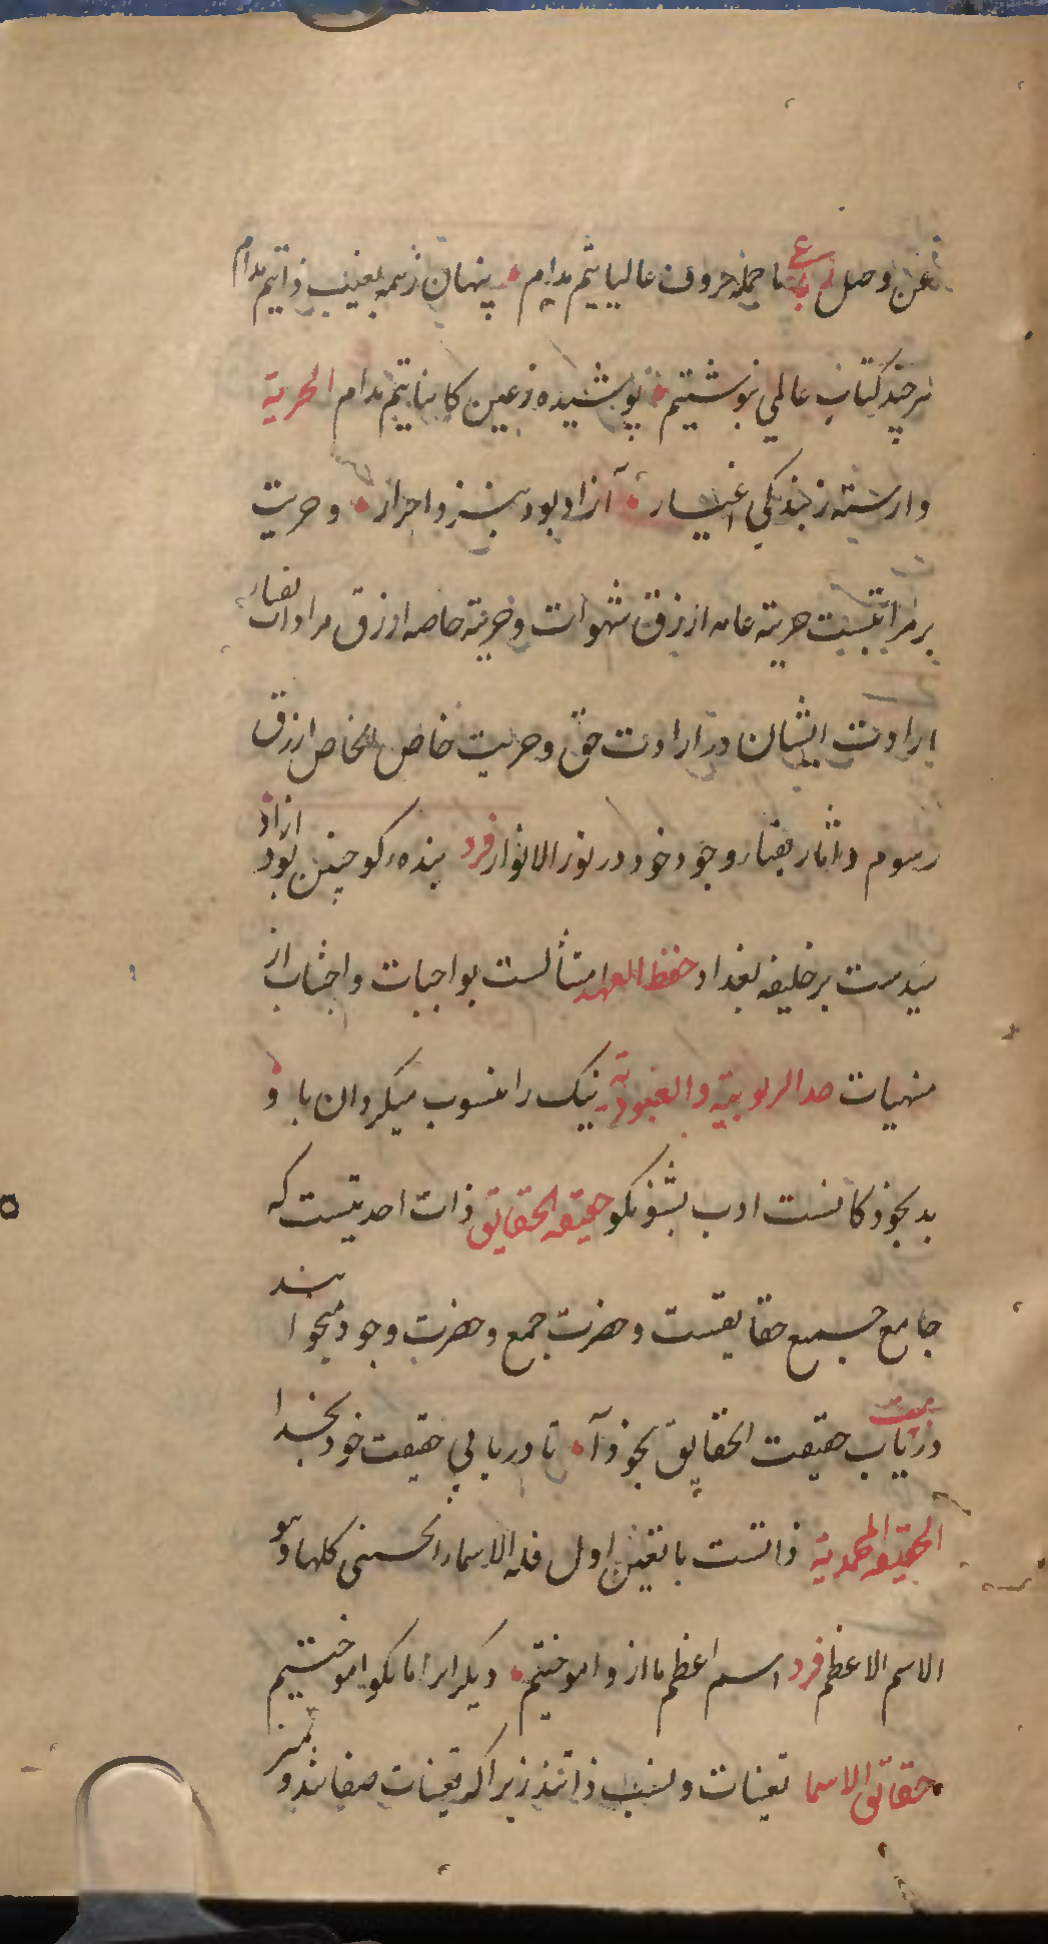 عن وصل رباعی ما جمله حروف عالیاتیم مدام پنهان ز همه بغیب ذاتیم مدام
هر چند کتاب عالمی بنوشتیم پوشیده ز عین کایناتیم مدام الحریة
وارسته ز بندگی اغیار آزاد بود بنزد احرار و حریت
بر مراتبست حریة عامه از رق شهوات و حریة خاصه از رق مرادات بفناء
ارادت ایشان در ارادت حق و حریت خاص الخاص از رق
رسوم و اثار بفناء وجود خود در نور الانوار فرد بنده کو چنین بود ازاد
سیدست بر خلیفه بغداد حفظ العهد امتثالست بواجبات و اجتناب از
منهیات حد الربوبیة والعبودیة نیک را منسوب میکردان با و
بد بخود کانست ادب بشنو نکو حقیقة الحقایق ذات احدیتست که
جامع جمیع حقایقست و حضرت جمع و حضرت وجود میخوانند
بیت دریاب حقیقت الحقایق بخود آ تا دریابی حقیقت خود بخدا
الحقیقة المحمدیة ذاتست با تعین اول فله الاسماء الحسنی کلها وهو
الاسم الاعظم فرد اسم اعظم ما ازو اموختیم دیکرانرا ما نکو اموختیم
حقائق الاسما تعینات و نسب ذاتند زیرا که تعینات صفاتند و تمیز